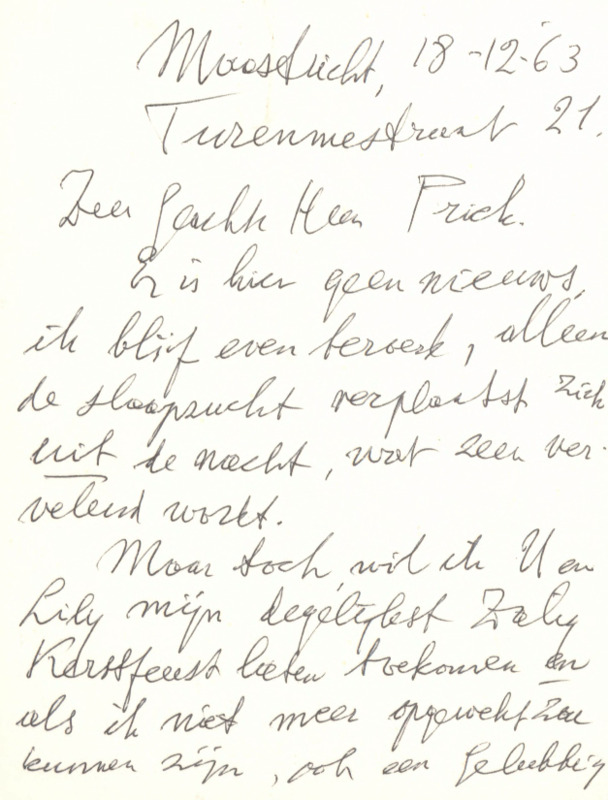 Maastricht, 18-12-63
Turennestraat 21.
Zeer Geachte Heer Prick.
Er is hier geen nieuws,
ik blijf even beroerd, alleen
de slaapzucht verplaatst zich
uit de nacht, wat zeer ver-
velend wordt.
Maar toch, wil ik U en
Lily mijn degelijkst Zalig
Kerstfeest laten toekomen en
als ik niet meer opgewekt zou
kunnen zijn, ook een Gelukkig